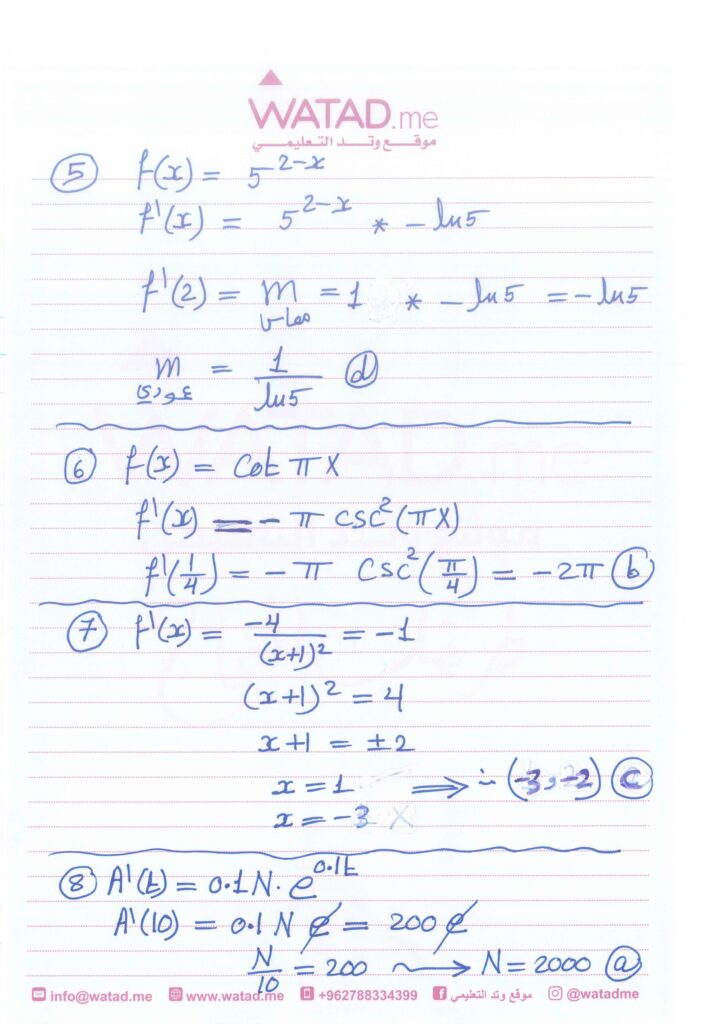 WATAD.me
موقع وتد التعليمي
⑤ f(x) = 5^{2-x}
f'(x) = 5^{2-x} * - ln5
f'(2) = m مماس = 1 * - ln5 = - ln5
m عمودي = 1/ln5 ⓓ
⑥ f(x) = cot πx
f'(x) = - π csc²(πx)
f'(1/4) = - π csc²(π/4) = -2π ⓑ
⑦ f'(x) = -4/(x+1)² = -1
(x+1)² = 4
x+1 = ±2
x = 1 ⟹ ∴ (-3, -2) ⓒ
x = -3 ×
⑧ A'(t) = 0.1N. e^{0.1t}
A'(10) = 0.1 N e = 200 e
N/10 = 200 → N = 2000 ⓐ
info@watad.me www.watad.me +962788334399 موقع وتد التعليمي @watadme